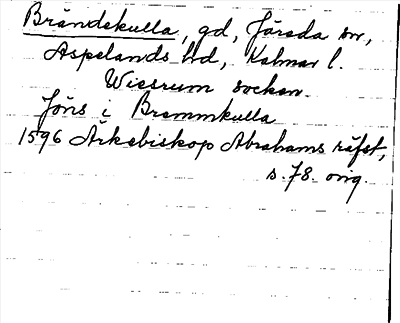 Brändskulla, gd, Järeda sn,
Aspelands hd, Kalmar l.
Wissrum socken.
Jöns i Brammkulla
1596 Ärkebiskop Abrahams räfst,
s. 78. orig.